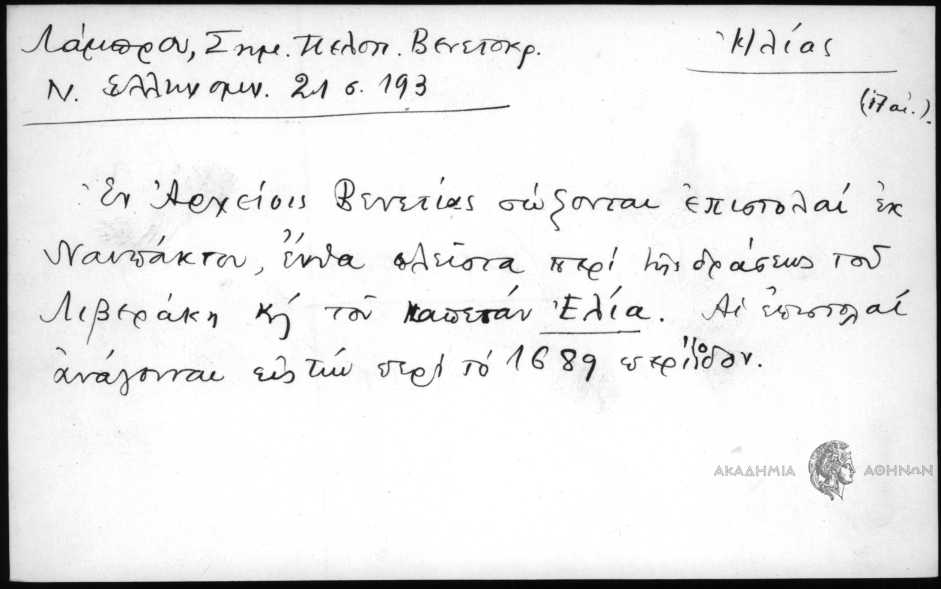 Λάμπρου, Σημ. Πελοπ. Βενετοκρ.
Ν. Ελληνομν. 21 σ. 193
Ἠλίας
(Παι.).
Ἐν Ἀρχείοις Βενετίας σώζονται ἐπιστολαί ἐκ
Ναυπάκτου, ἔνθα πλεῖστα περί τῆς δράσεως τοῦ
Λιβεράκη κ΄ τοῦ καπετάν Ἐλία. Αἱ ἐπιστολαί
ἀνάγονται εἰς τήν περί τό 1689 περίοδον.
ΑΚΑΔΗΜΙΑ ΑΘΗΝΩΝ